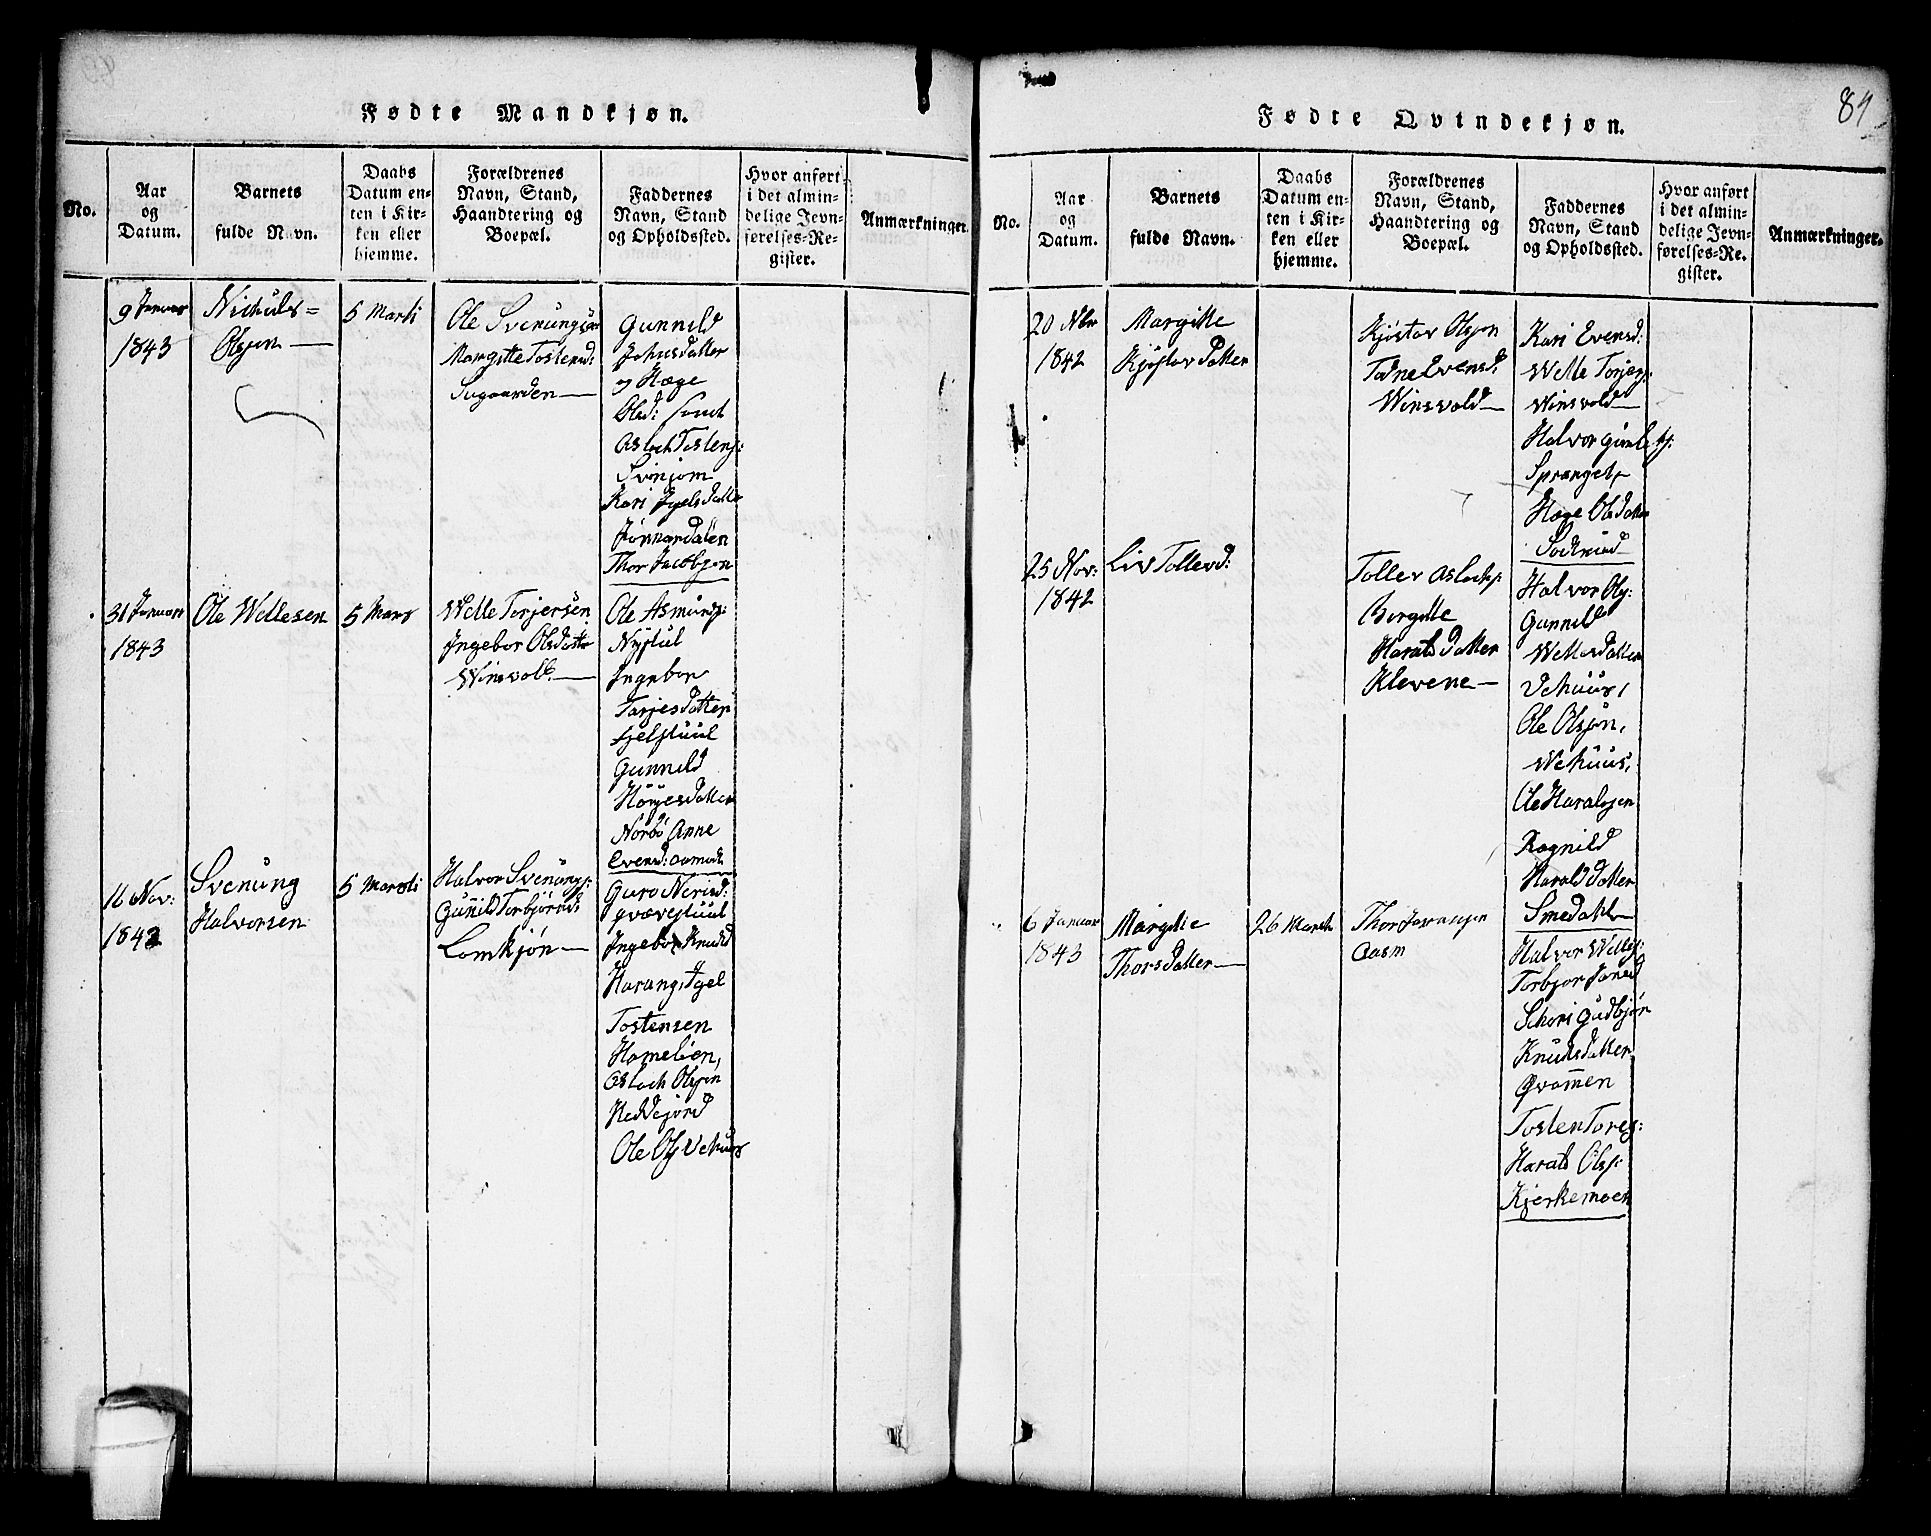 84
Fødte Mandkjøn.
No.
Aar
og
Datum.
Barnets
fulde Navn.
Daabs
Datum en-
ten i Kir-
ken eller
hjemme.
Forældrenes
Navn, Stand,
Haandtering og
Boepæl.
Faddernes
Navn, Stand
og Opholdssted.
Hvor anført
i det almin-
delige Jevn-
førelses-Re-
gister.
Anmærkninger.
9 Januar
1843
Olsjon
5 Marti
Ole Svenungsøn
Margitte Tostensd:
Gunnild
Johnsdatter
og Hæge
Olsd:
Asloch Tostensj:
Svinjom
Kari
Thor Jacobsen
31 Januar
1843
Ole Wellesen
5 Mars
Welle Torjersen
Ingebor Olsdatter
Winsvold
Ole Asmundsj:
Nystul
Ingebor
Torjesdatter
Gunnild
Norbø Anne
Evensd:
16 Nov:
1842
Svenung
Halvorsen
5 Marti
Halvor Svenungs:
Gunild Torbjørnsd:
Lomkjøn
Guro Nerisd:
Ingebor Knudsd
Tostensen
Hamelien,
Asloch Olsjøn
Heddejord
Ole Olsj Vehuus
Fødte Qvindekjøn.
No.
Aar
og
Datum.
Barnets
fulde Navn.
Daabs
Datum en-
ten i Kir-
ken eller
hjemme.
Forældrenes
Navn, Stand,
Haandtering og
Boepæl.
Faddernes
Navn, Stand
og Opholdssted.
Hvor anført
i det almin-
delige Jevn-
førelses-Re-
gister.
Anmærkninger.
20 Nbr
1842
Margitte
Kjøstovdatter
Kjøstov Olsjon
Tone Evensd:
Winsvold
Kari Evensd:
Welle Torjesj:
Winsvold
Halvor
Hæge Olsdatter
25 Nov:
1842
Liv Tollevd:
Tollev Aslochsj:
Bergitte
Haralsdatter
Klevene
Halvor Olsj:
Gunnild
Wettesdatter
Vehuus,
Ole Olsjøn,
Wehuus,
Ole Haralsjen
Ragnild
Haralddatter
Smedahl
6 Januar
1843
Margitte
Thorsdatter
26 Marti
Thor
Aasm
Halvor Wellesj:
Gudbjør
Knudsdatter
Qvammen
Tosten Toresj:
Harald Olsj:
Kjerkemoen